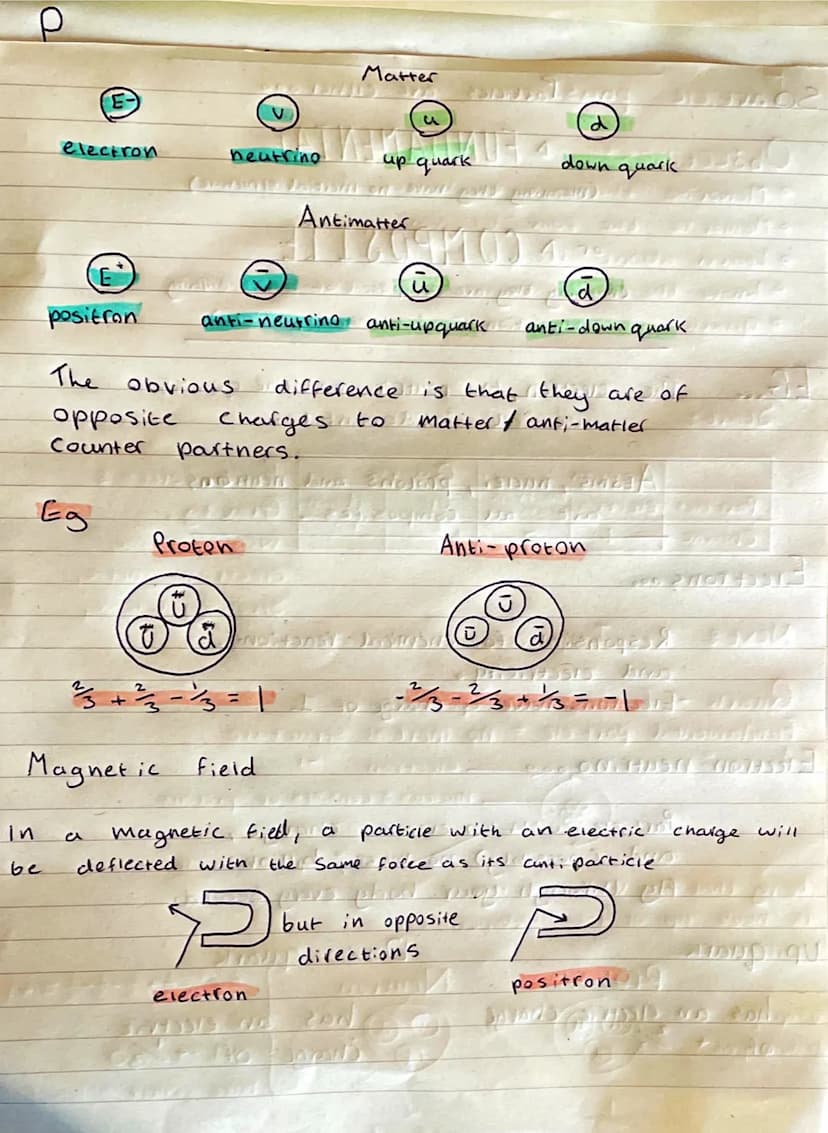 P
Matter
E- v u d
electron neutrino up quark down quark
Antimatter
E+ v̄ ū d̄
positron anti-neutrino anti-upquark anti-down quark
The obvious difference is that they are of
opposite charges to matter/anti-matter
counter partners.
Eg
Proton Anti-proton
ū
ū d̄
2/3 + 2/3 - 1/3 = 1 -2/3 - 2/3 + 1/3 = -1
Magnetic field
In a magnetic field, a particle with an electric charge will
be deflected with the same force as its anti particle
but in opposite
directions
electron positron